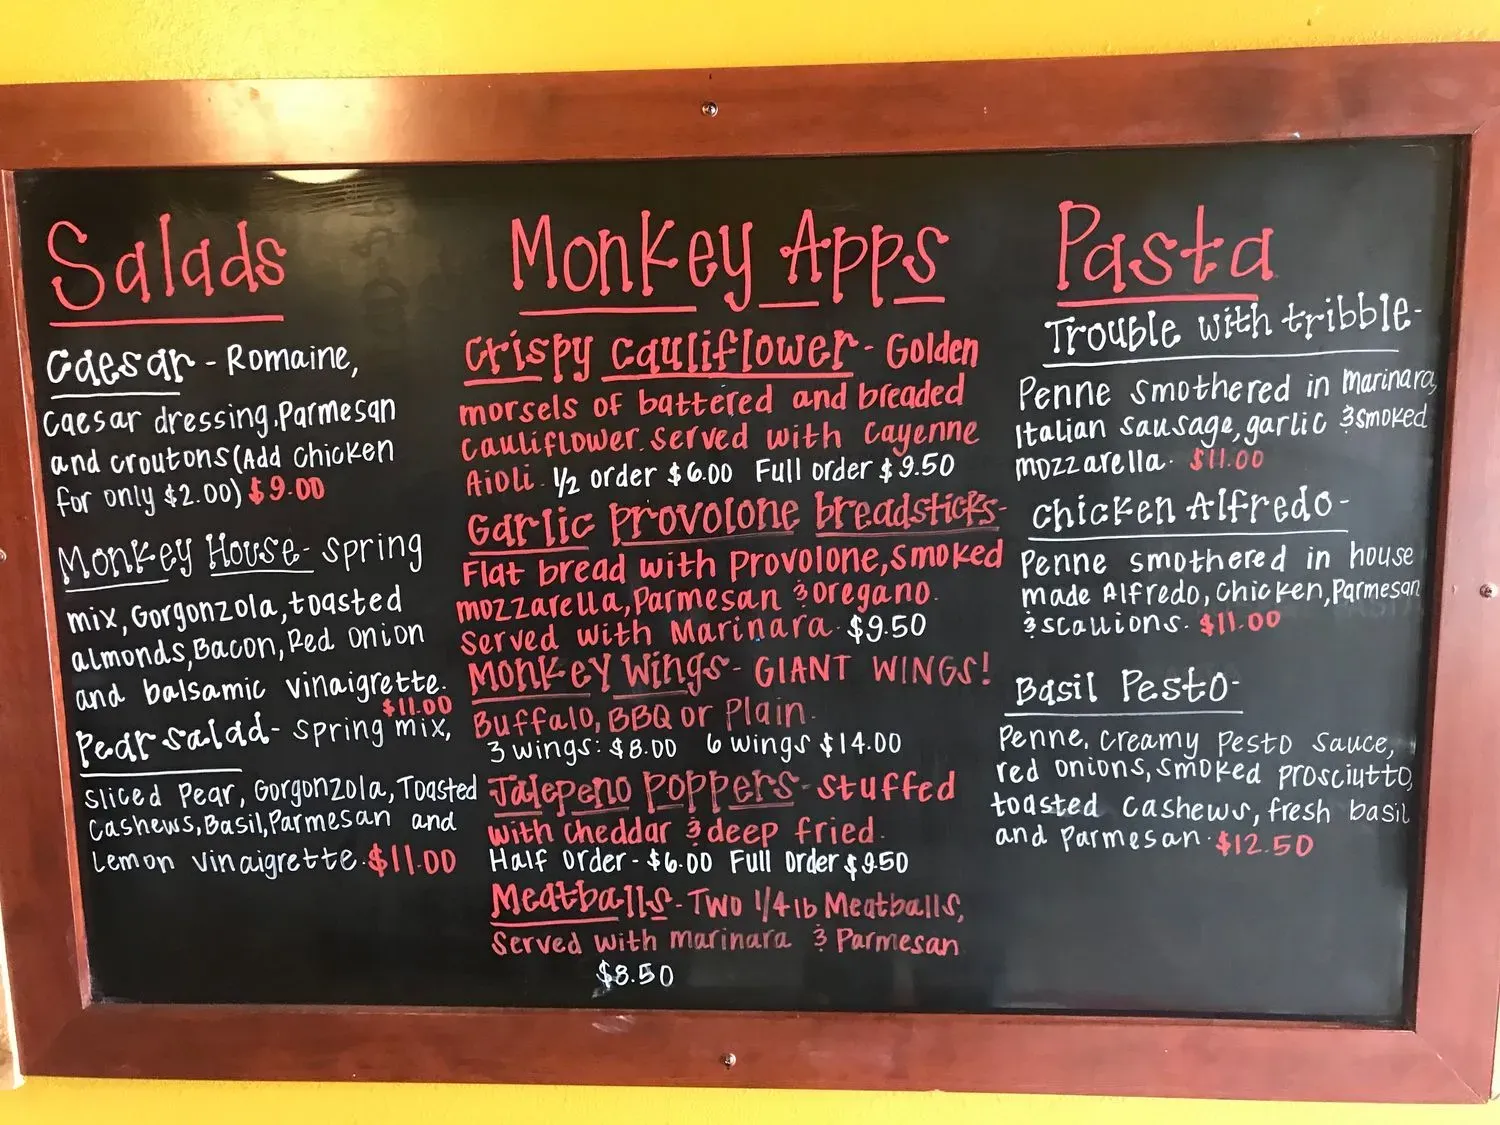 Salads
Caesar - Romaine,
Caesar dressing, Parmesan
and croutons (Add chicken
for only $2.00) $9.00
Monkey House - spring
mix, Gorgonzola, toasted
almonds, Bacon, Red onion
and balsamic vinaigrette.
$11.00
Pear salad - spring mix,
sliced pear, Gorgonzola, Toasted
Cashews, Basil, Parmesan and
Lemon vinaigrette. $11.00
Monkey Apps
Crispy Cauliflower - Golden
morsels of battered and breaded
cauliflower. served with Cayenne
Aioli. 1/2 order $6.00 Full order $9.50
Garlic Provolone breadsticks-
Flat bread with Provolone, smoked
mozzarella, Parmesan & oregano.
Served with Marinara. $9.50
Monkey Wings - GIANT WINGS!
Buffalo, BBQ or Plain.
3 wings: $8.00 6 wings $14.00
Jalepeno Poppers - stuffed
with cheddar & deep fried.
Half Order - $6.00 Full Order $9.50
Meatballs - Two 1/4 lb Meatballs,
Served with marinara & Parmesan
$8.50
Pasta
Trouble with tribble-
Penne smothered in marinara,
Italian sausage, garlic & smoked
mozzarella. $11.00
Chicken Alfredo-
Penne smothered in house
made Alfredo, Chicken, Parmesan
& scallions. $11.00
Basil Pesto-
Penne, creamy pesto sauce,
red onions, smoked prosciutto,
toasted cashews, fresh basil
and Parmesan. $12.50